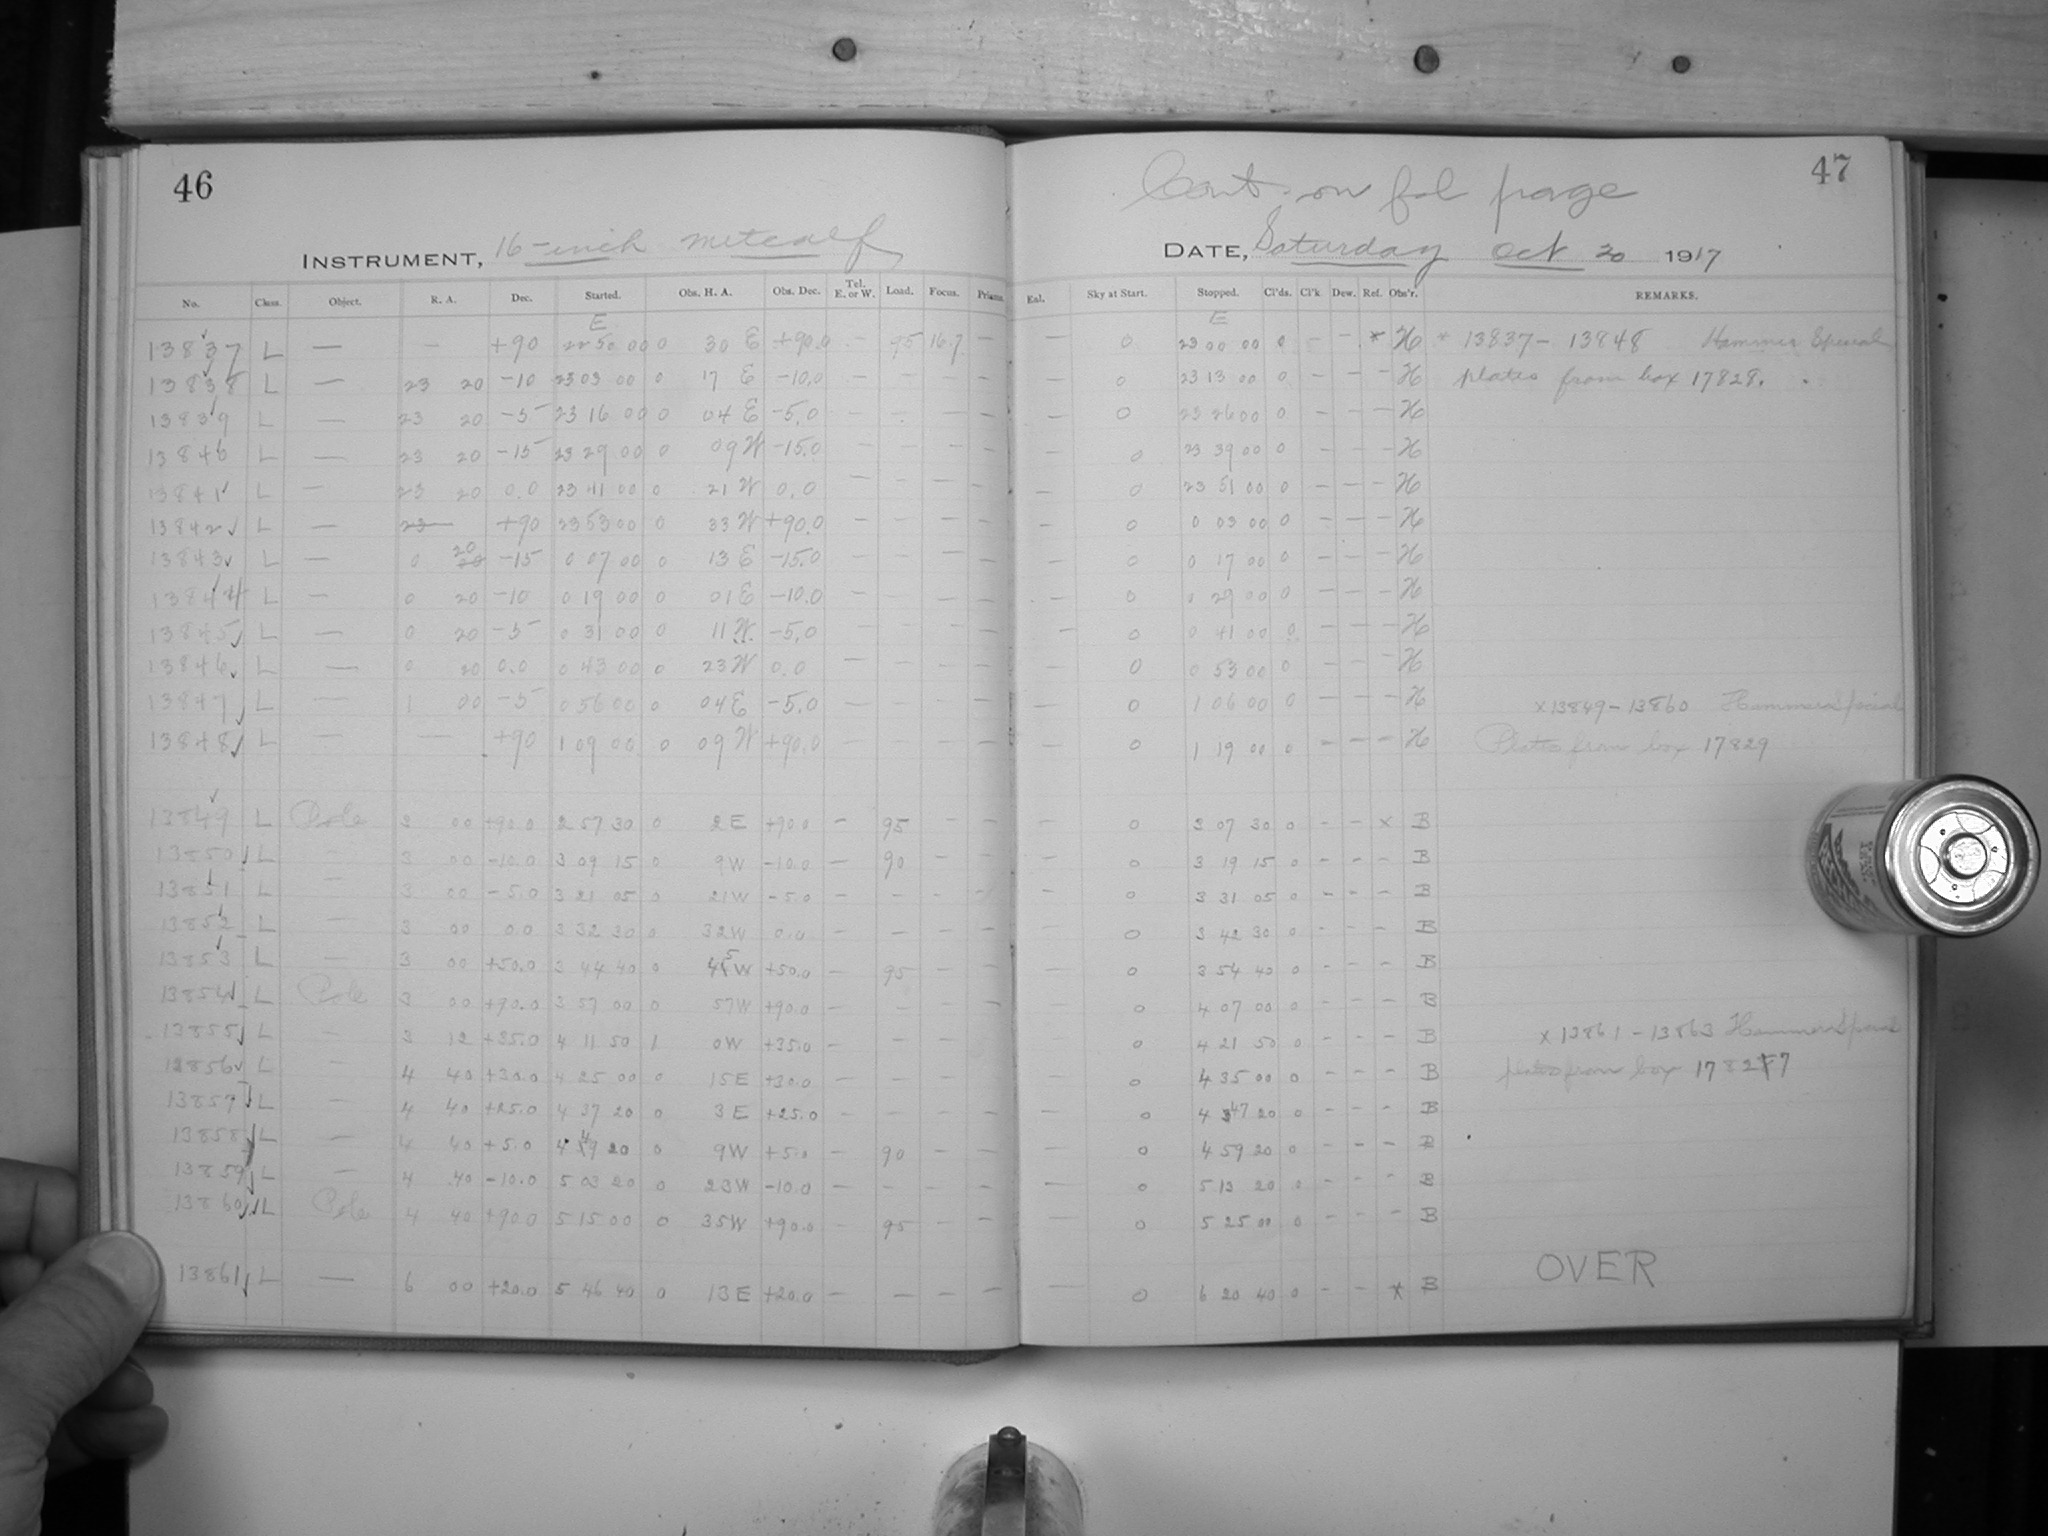 46
INSTRUMENT, 16-inch Metcalf
No. Class. Object. R. A. Dec. Started. Obs. H. A. Obs. Dec. Tel. E. or W. Load. Focus. Prisms
E
13837 L — — +90 22 50 00 0 30 E +90.0 — 95 16.7 —
13838 L — 23 20 -10 23 03 00 0 17 E -10.0 — — — —
13839 L — 23 20 -5 23 16 00 0 04 E -5.0 — — — —
13840 L — 23 20 -15 23 29 00 0 09 W -15.0 — — — —
13841 L — 23 20 0.0 23 41 00 0 21 W 0.0 — — — —
13842 L — 23 +90 23 53 00 0 33 W +90.0 — — — —
13843 L — 0 20 -15 0 07 00 0 13 E -15.0 — — — —
13844 L — 0 20 -10 0 19 00 0 01 E -10.0 — — — —
13845 L — 0 20 -5 0 31 00 0 11 W -5.0 — — — —
13846 L — 0 20 0.0 0 43 00 0 23 W 0.0 — — — —
13847 L — 1 00 -5 0 56 00 0 04 E -5.0 — — — —
13848 L — — +90 1 09 00 0 09 W +90.0 — — — —
13849 L Pole 3 00 +90.0 2 57 30 0 2 E +90.0 — 95 — —
13850 L — 3 00 -10.0 3 09 15 0 9 W -10.0 — 90 — —
13851 L — 3 00 -5.0 3 21 05 0 21 W -5.0 — — — —
13852 L — 3 00 0.0 3 32 30 0 32 W 0.0 — — — —
13853 L — 3 00 +50.0 3 44 40 0 45 W +50.0 — 95 — —
13854 L Pole 3 00 +90.0 3 57 00 0 57 W +90.0 — — — —
13855 L — 3 12 +35.0 4 11 50 1 0 W +35.0 — — — —
13856 L — 4 40 +30.0 4 25 00 0 15 E +30.0 — — — —
13857 L — 4 40 +25.0 4 37 20 0 3 E +25.0 — — — —
13858 L — 4 40 +5.0 4 49 20 0 9 W +5.0 — 90 — —
13859 L — 4 40 -10.0 5 03 20 0 23 W -10.0 — — — —
13860 L Pole 4 40 +90.0 5 15 00 0 35 W +90.0 — 95 — —
13861 L — 6 00 +20.0 5 46 40 0 13 E +20.0 — — — —
47
Cont. on fol page
DATE, Saturday Oct 20 1917
Eal. Sky at Start. Stopped. Cl'ds. Cl'k Dew. Ref. Obs'r. REMARKS.
E
— 0 23 00 00 0 — — * H * 13837 - 13848 Hammer Special
— 0 23 13 00 0 — — — H plates from box 17828.
— 0 23 26 00 0 — — — H
0 23 39 00 0 — — — H
— 0 23 51 00 0 — — — H
0 0 03 00 0 — — — H
— 0 0 17 00 0 — — — H
— 0 0 29 00 0 — — — H
— 0 0 41 00 0 — — — H
— 0 0 53 00 0 — — — H
— 0 1 06 00 0 — — — H x 13849 - 13860 Hammer Special
— 0 1 19 00 0 — — — H Plates from box 17829
— 0 3 07 30 0 — — x B
— 0 3 19 15 0 — — — B
— 0 3 31 05 0 — — — B
— 0 3 42 30 0 — — — B
— 0 3 54 40 0 — — — B
— 0 4 07 00 0 — — — B
— 0 4 21 50 0 — — — B x 13861 - 13863 Hammer Special
— 0 4 35 00 0 — — — B plates from box 17827
— 0 4 47 20 0 — — — B
— 0 4 59 20 0 — — — B
— 0 5 13 20 0 — — — B
— 0 5 25 00 0 — — — B
OVER
— 0 6 20 40 0 — — x B